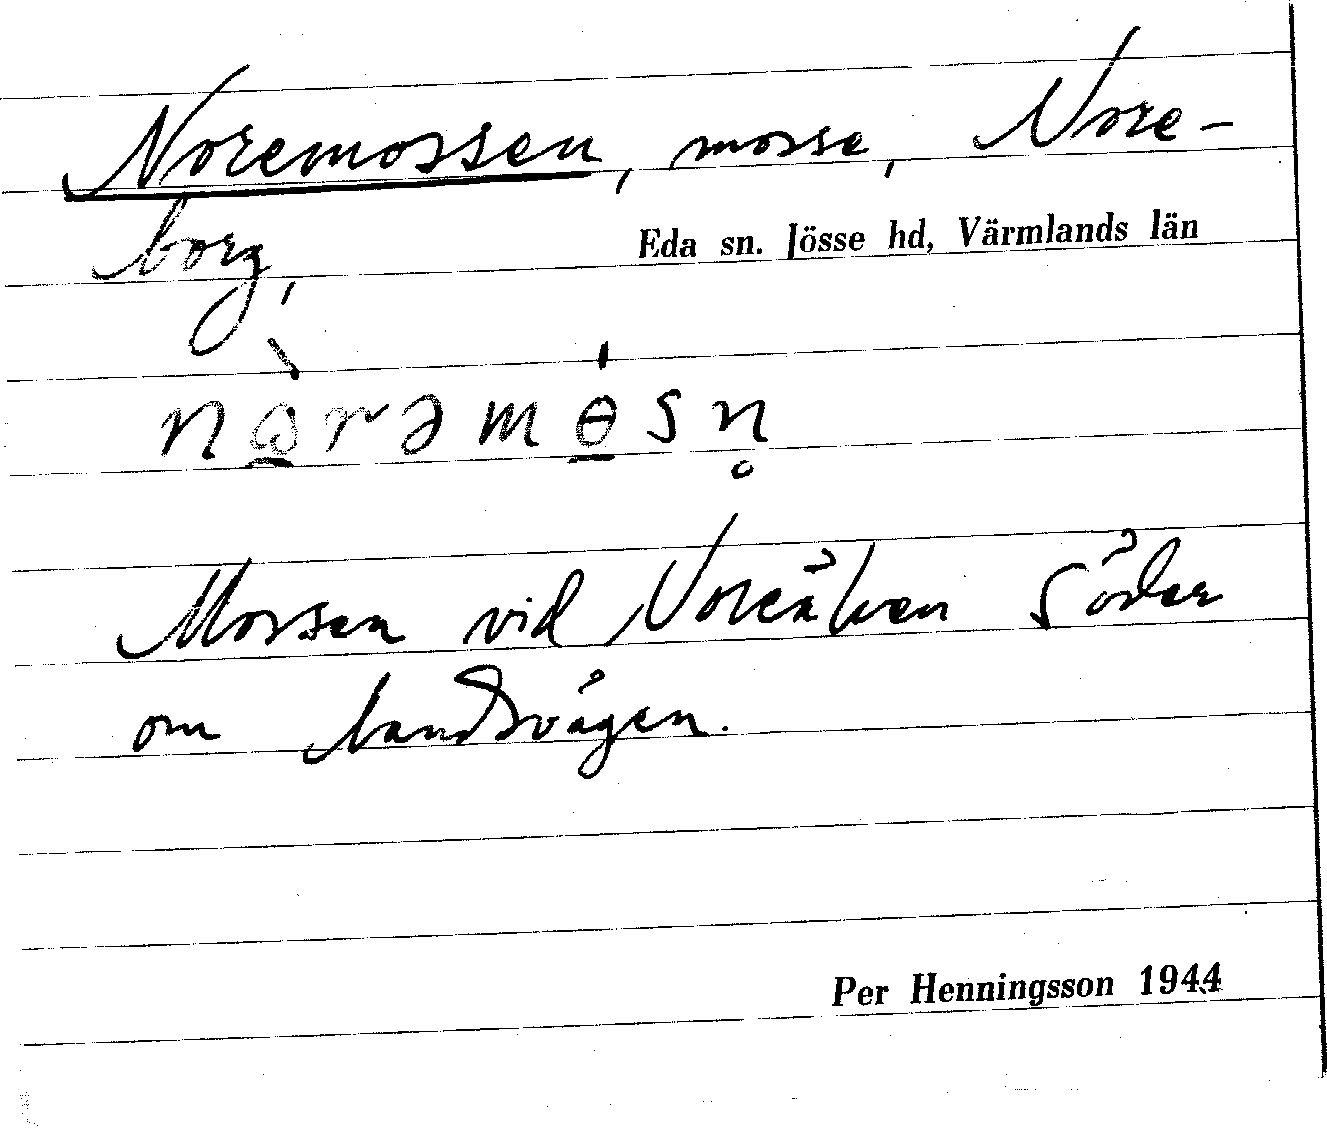 Noremossen, mosse, Nore-
borg,
Eda sn. Jösse hd, Värmlands län
Mossen vid Noreälven söder
om landsvägen.
Per Henningsson 1944